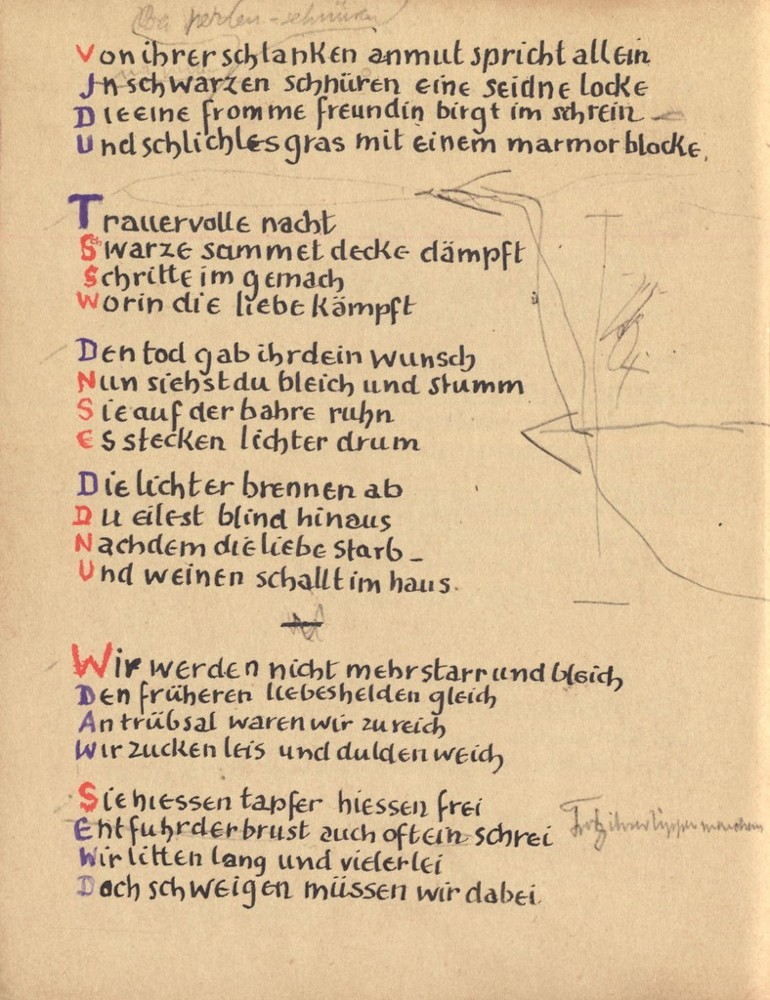 perlen-schnüren
Von ihrer schlanken anmut spricht allein
In schwarzen schnüren eine seidne locke
Die eine fromme freundin birgt im schrein –
Und schlichtes gras mit einem marmorblocke.
Trauervolle nacht
Schwarze sammetdecke dämpft
Schritte im gemach
Worin die liebe kämpft
Den tod gab ihr dein wunsch
Nun siehst du bleich und stumm
Sie auf der bahre ruhn
Es stecken lichter drum
Die lichter brennen ab
Du eilest blind hinaus
Nachdem die liebe starb –
Und weinen schallt im haus.
Wir werden nicht mehr starr und bleich
Den früheren liebeshelden gleich
An trübsal waren wir zu reich
Wir zucken leis und dulden weich
Sie hiessen tapfer hiessen frei
Entfuhr der brust auch oft ein schrei
Trotz ihrer lippen manchem
Wir litten lang und vielerlei
Doch schweigen müssen wir dabei.